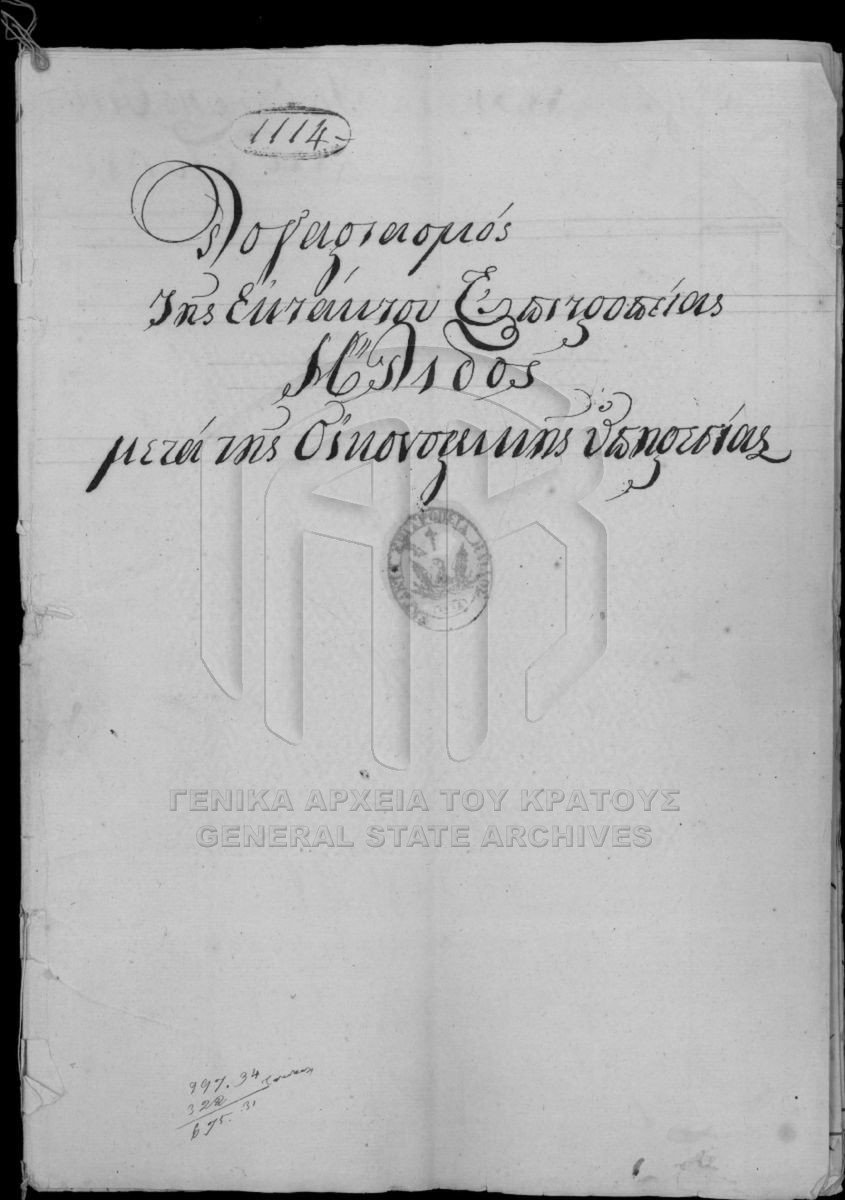 1114
Λογαριασμός
τῆς Ἐκτάκτου Ἐπιτροπείας
Μήλιδος
μετά τῆς Οἰκονομικῆς ὑπηρεσίας
ΓΕΝΙΚΑ ΑΡΧΕΙΑ ΤΟΥ ΚΡΑΤΟΥΣ
GENERAL STATE ARCHIVES
997.34
322
675.31